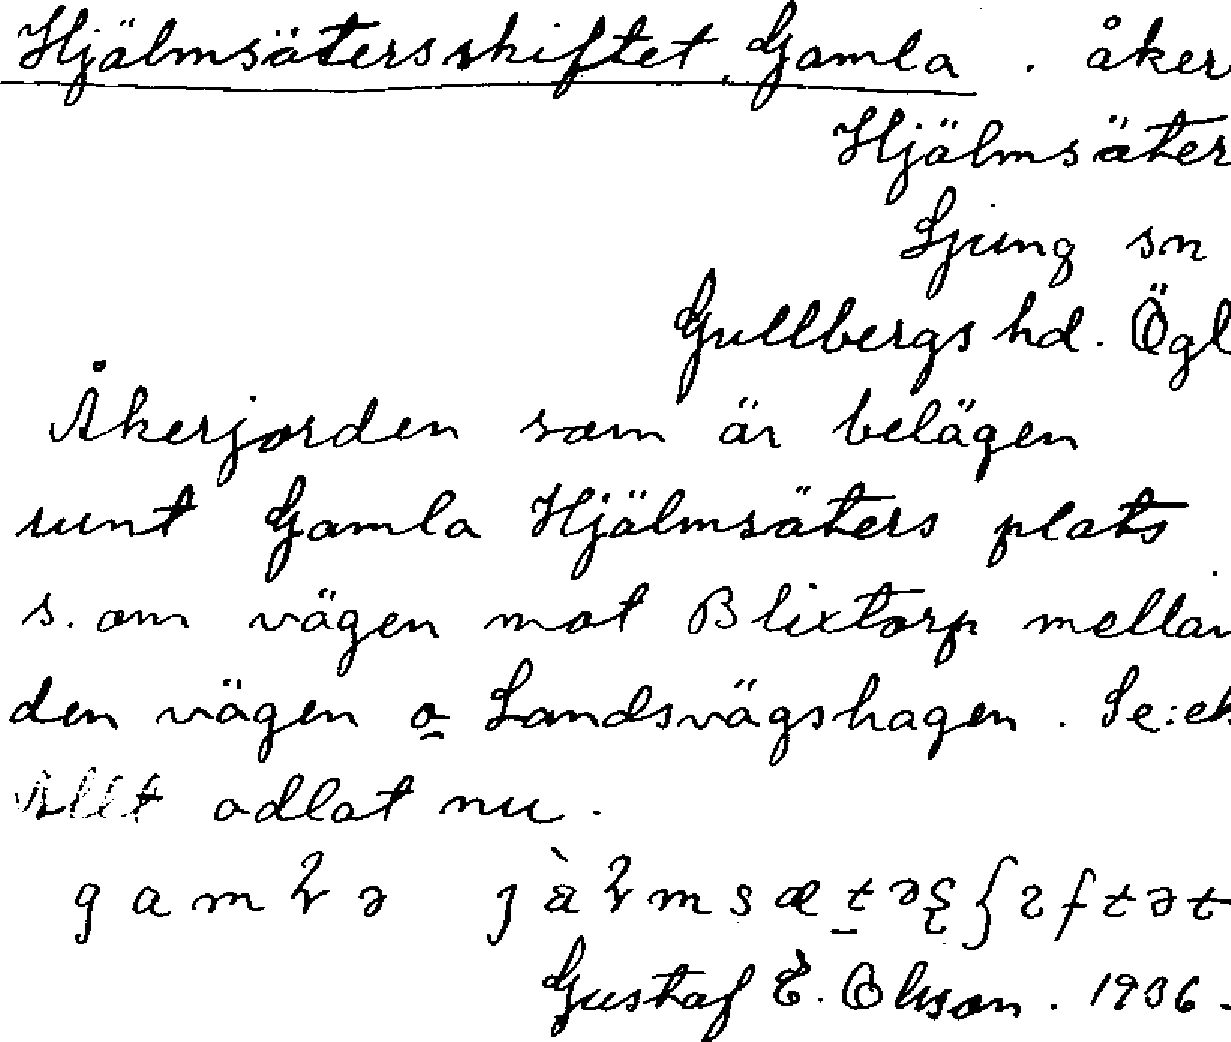 Hjälmsätersskiftet, Gamla . åker
Hjälmsäter
Ljung sn
Gullbergs hd. Ögl
Åkerjorden som är belägen
runt Gamla Hjälmsäters plats
s. om vägen mot Blixtorp mellan
den vägen o Landsvägshagen. Se: ek
Allt odlat nu.
Gustaf E. Olsson. 1936.